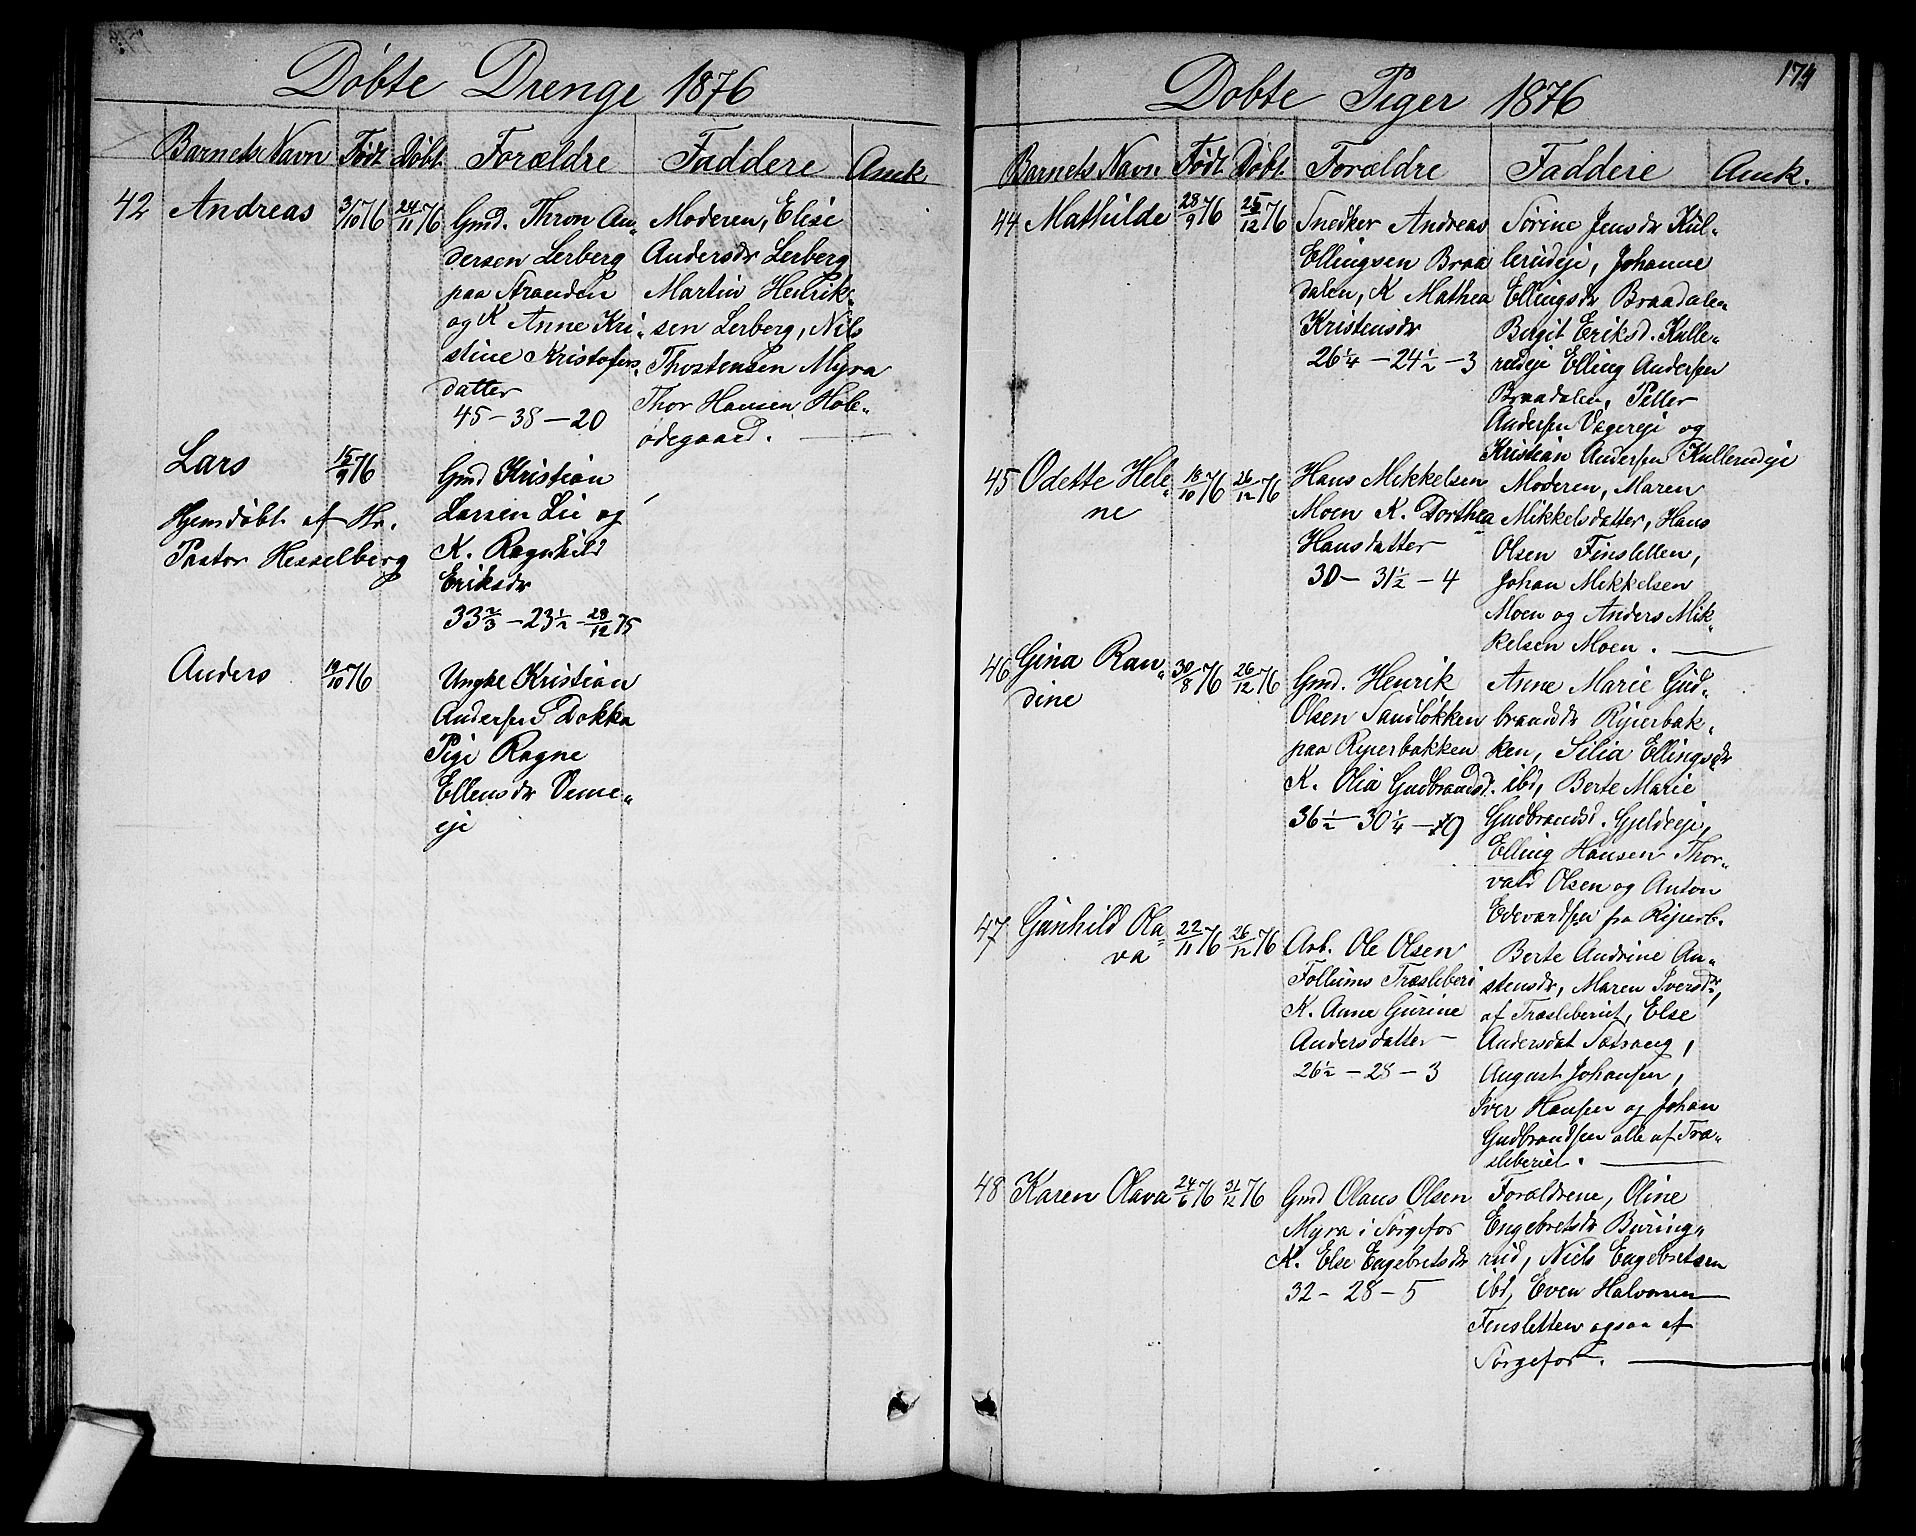 Døbte Drenge 1876
Barnets Navn Født Døbt. Forældre Faddere Anmk
42 Andreas 3/10 76 24/11 76
Gmd. Thron An„
dersen Lerberg
paa Stranden
og K Anne Kri„
stine Kristofers„
datter
45 - 38 - 20
Moderen, Elise
Andersdr Lerberg
Martin Henrik„
sen Lerberg, Nils
Thostensen Myra
Thor Hansen Hole„
ødegaard.
Lars 15/9 76
Hjemdøbt af Hr.
Pastor Hesselberg
Gmd Kristian
Larsen Lie og
K. Ragnhild
Eriksdr
33 2/3 - 23 1/2 - 28/12 75
Anders 19/10 76
Ungk Kristian
Andersen Dokka
Pige Ragne
Ellensdr Veme„
eje
174
Døbte Piger 1876
Barnets Navn. Født Døbt. Forældre Faddere Anmk.
44 Mathilde 28/9 76 25/12 76
Snedker Andreas
Ellingsen Braa
dalen, K Mathea
Kristensdr
26 1/4 - 24 1/2 - 3
Sørine Jensdr Kul„
lerudeje, Johanne
Ellingsdr Braadalen
Birgit Eriksd. Kulle„
rudeje Elling Andersen
Braadalen, Petter
Andersen Vagereje og
Kristian Andersen Kullerudeje
45 Odette Hele„
ne 18/10 76 26/12 76
Hans Mikkelsen
Moen K. Dorthea
Hansdatter
30 - 31 1/2 - 4
Moderen, Maren
Mikkelsdatter, Hans
Olsen Finsletten,
Johan Mikkelsen
Moen og Anders Mik„
kelsen Moen.
46 Gina Ran„
dine 30/8 76 26/12 76
Gmd. Henrik
Olsen Sandløkken
paa Ryierbakken
K. Olia Gudbrandsd.
36 1/2 - 30 1/4 - 9
Anne Marie Gud„
brandsdr Ryierbak„
ken, Silia Ellingsdr
ibd, Berte Marie
Gudbrandsd. Gjeldeje,
Elling Hansen Thor„
vald Olsen og Anton
Edevardsen fra Ryierb.
47 Gunhild Ola„
va 22/11 76 26/12 76
Arb. Ole Olsen
Follums Træsliberi
K. Anne Gurine
Andersdatter
26 1/2 - 28 - 3
Berte Andrine An„
stensdr, Maren Iversdr,
af Træsliberiet, Else
Andersdat Sætrang,
August Johansen,
Iver Hansen og Johan
Gudbrandsen alle af Træ„
sliberiet.
48 Karen Olava 24/6 76 31/12 76
Gmd Olaus Olsen
Myra i Sørgefor
K. Else Engebretsdr
32 - 28 - 5
Forældrene, Oline
Engebretsdr Buring„
rud, Niels Engebretsen
ibd, Even Halvorsen
Finsletten ogsaa af
Sørgefor.